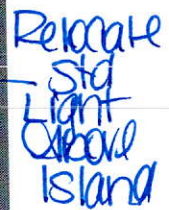 Relocate
Std
Light
Above
Island